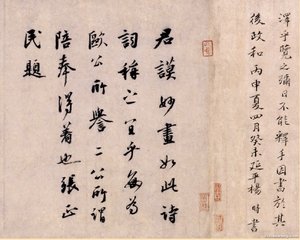 澤手覽之彌日不能釋手因書於其
後政和丙申夏四月癸未延平楊時書
君謨妙畫如此詩
詞稱之宜乎每為
歐公所譽二公所謂
陪奉得著也張正
民題